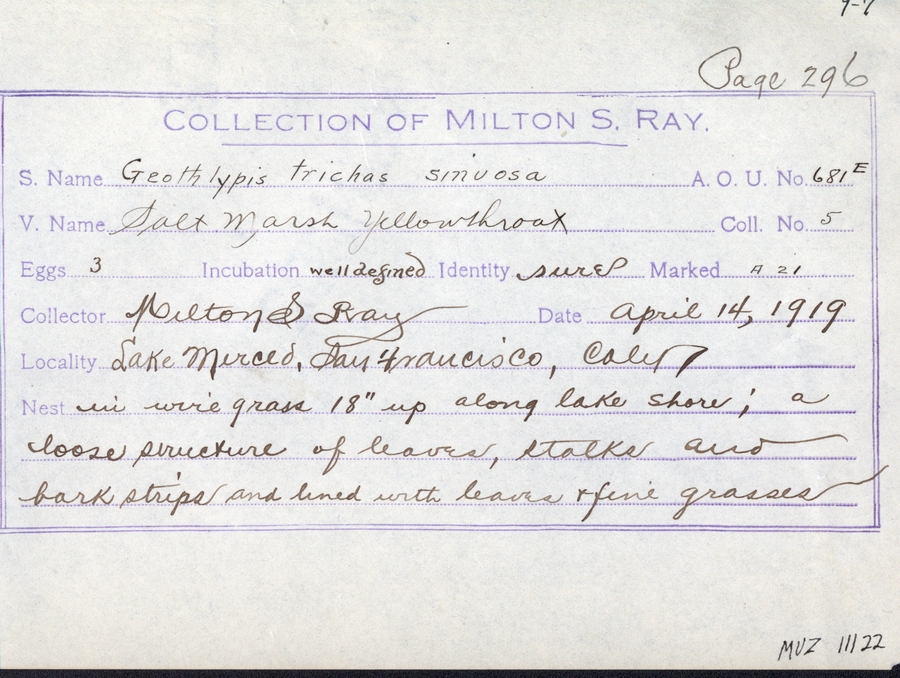 Page 296
COLLECTION OF MILTON S. RAY.
S. Name Geothlypis trichas sinuosa A. O. U. No. 681E
V. Name Salt Marsh Yellowthroat Coll. No. 5
Eggs 3 Incubation well defined Identity sure Marked A 21
Collector Milton S Ray Date April 14, 1919
Locality Lake Merced, San Francisco, Calif
Nest in wire grass 18" up along lake shore; a
loose structure of leaves, stalks and
bark strips and lined with leaves & fine grasses
MVZ 11122